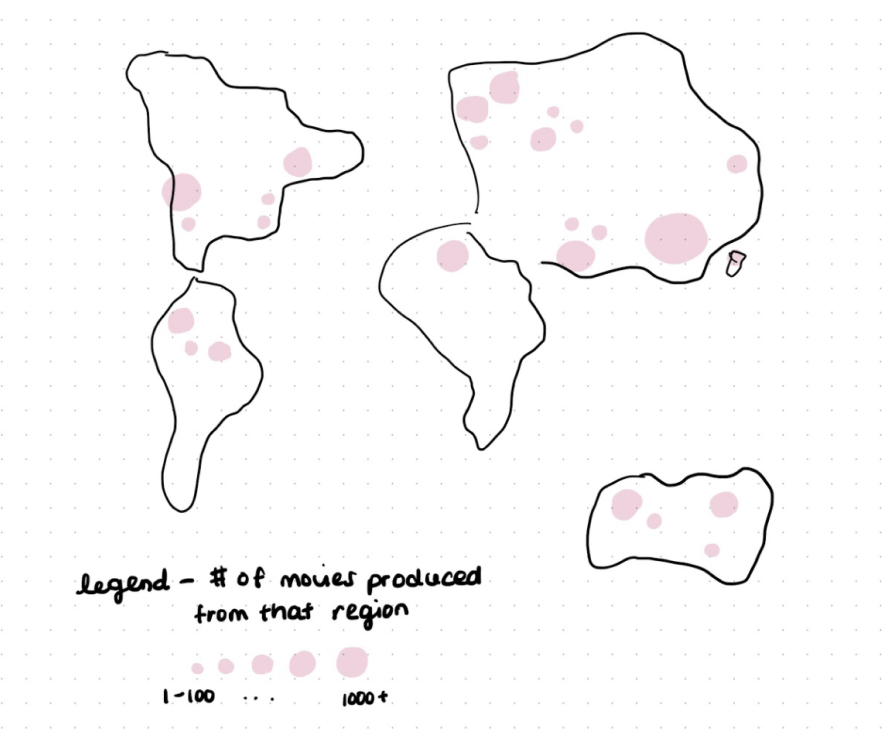 legend - # of movies produced
from that region
1-100 ... 1000+